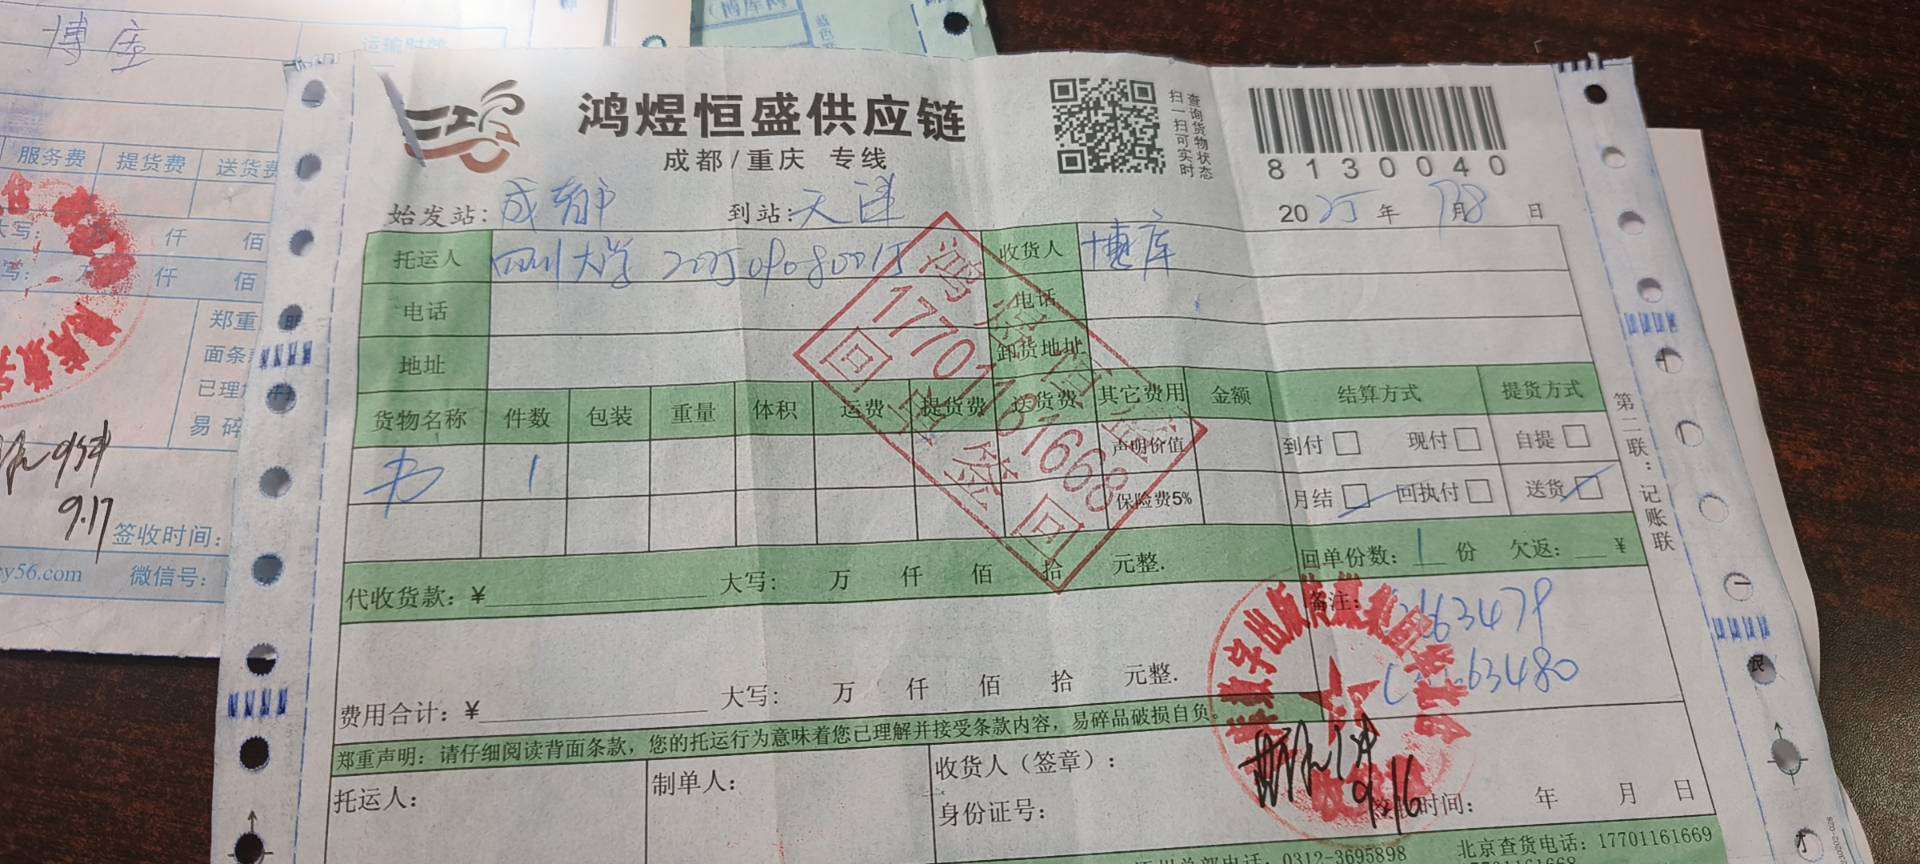 博库
运输时效
服务费 提货费 送货费
仟 佰
仟 佰
郑重
面条
已理
易碎
9.17
签收时间:
y56.com 微信号:
鸿煜恒盛供应链
成都/重庆 专线
扫一扫可实时
查询货物状态
8130040
始发站: 成都 到站: 天津 2025年 月8日
托运人 四川大学 20250908001 收货人 博库
电话 电话
地址 卸货地址
货物名称 件数 包装 重量 体积 运费 提货费 送货费 其它费用 金额 结算方式 提货方式
书 1 声明价值 到付 现付 自提
保险费5% 月结 回执付 送货
鸿煜恒盛
17701161668
回单签回
代收货款: ¥ 大写: 万 仟 佰 拾 元整. 回单份数: 1 份 欠返: ¥
备注: 63479
63480
费用合计: ¥ 大写: 万 仟 佰 拾 元整.
郑重声明: 请仔细阅读背面条款, 您的托运行为意味着您已理解并接受条款内容, 易碎品破损自负。
托运人: 制单人: 收货人(签章):
身份证号: 时间: 年 月 日
9.16
第二联: 记账联
电话: 0312-3695898 北京查货电话: 17701161669